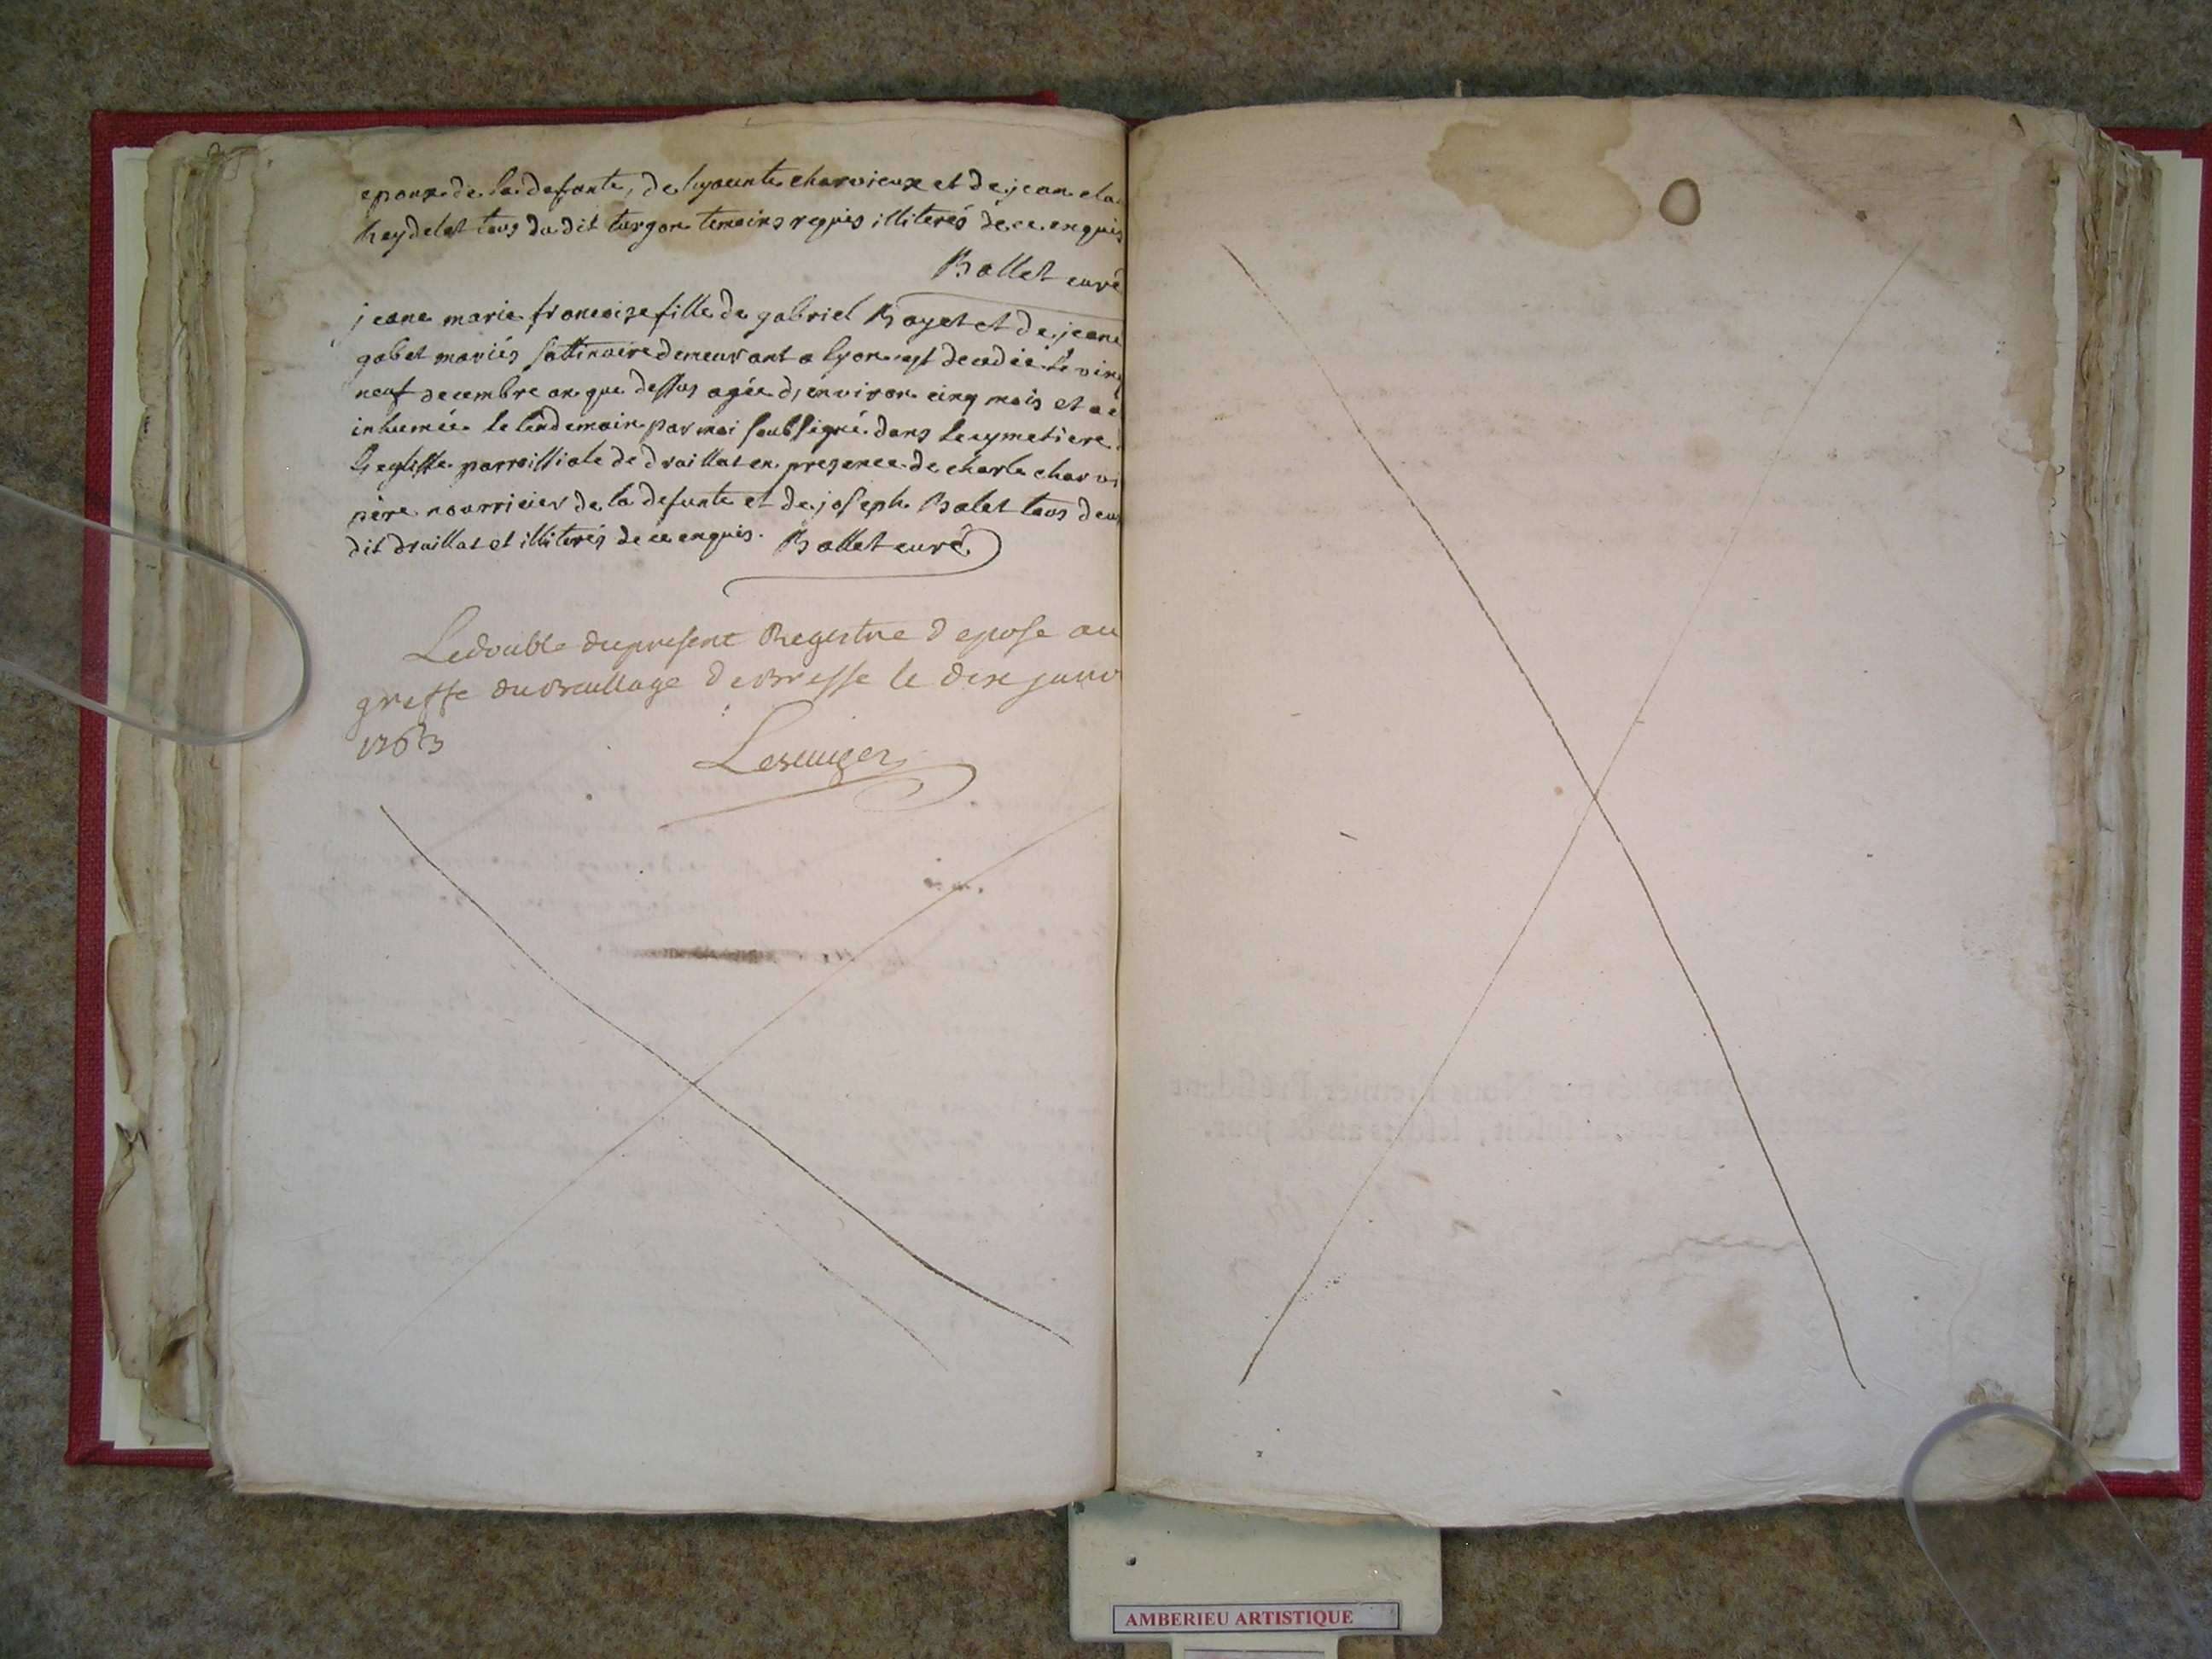 epoux de la defunte, de hyacinte charvieux et de jean cla
heydelet tous du dit turgon temoins requis illiterés de ce enquis
Ballet curé
jeane marie francoise fille de gabriel Boyet et de jeane
gabet mariés sattinaire demeurant a lyon est decedée le vin
neuf decembre an que dessus agée d'environ cinq mois et a é
inhumée le lendemain par moi soubsigné dans le cymetiere
l'eglisse parroissiale de druillat en presence de charle charvi
père nourricier de la defunte et de joseph Balet tous deux
dit druillat et illiterés de ce enquis. Ballet curé
Le double du present Registre depose au
greffe du Bailliage de Bresse le dix janv
1763
AMBERIEU ARTISTIQUE